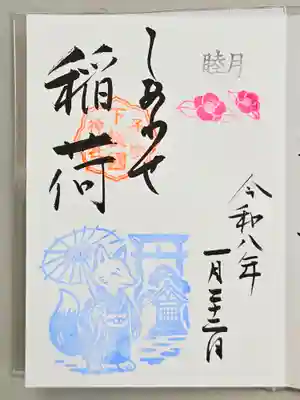 睦月
しあわせ
稲荷
令和八年
一月二十二日